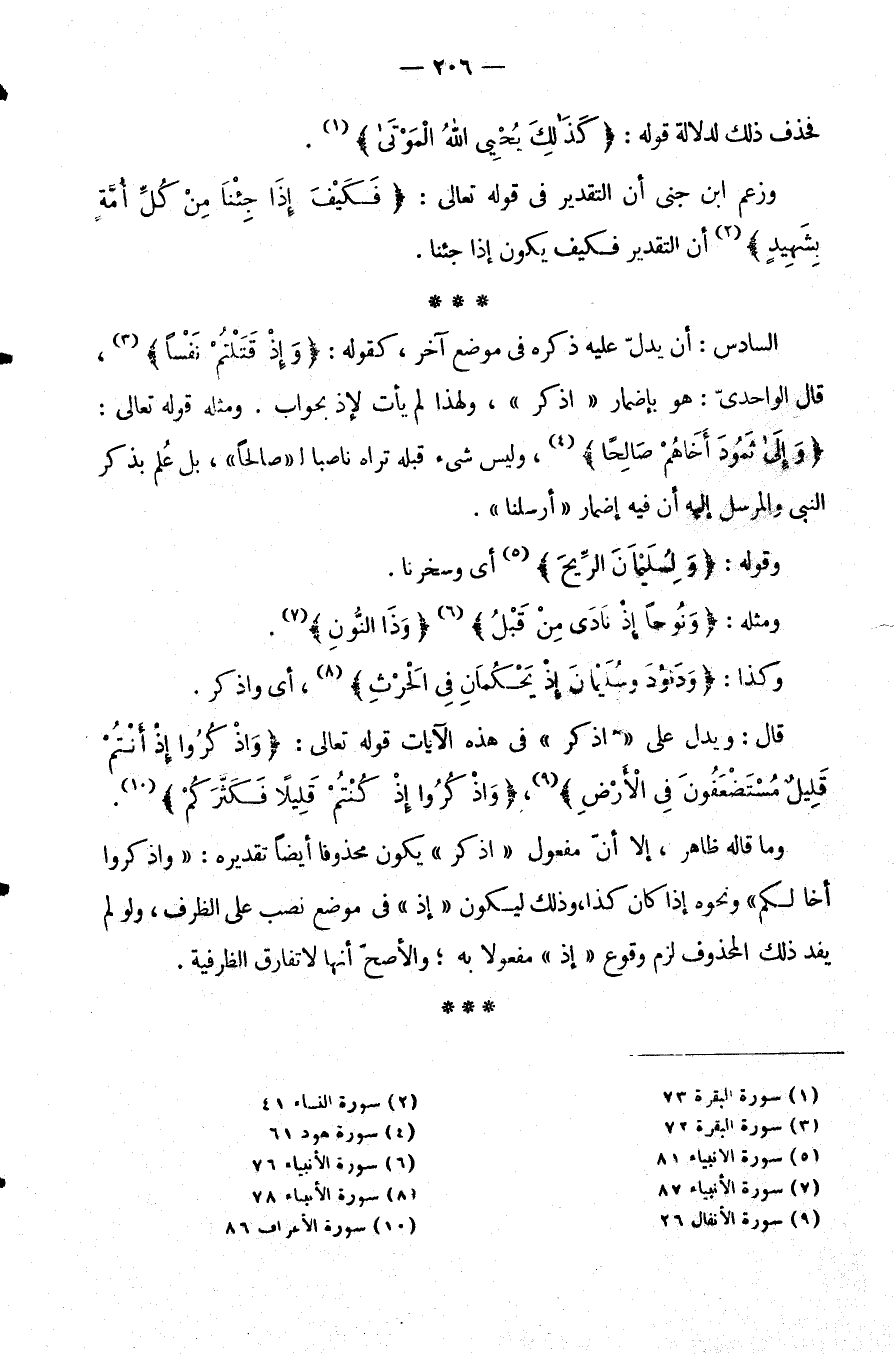 — ٢٠٦ —
فحذف ذلك لدلالة قوله : ﴿ كَذَٰلِكَ يُحْيِى اللهُ الْمَوْتَىٰ ﴾ (١) .
وزعم ابن جنى أن التقدير فى قوله تعالى : ﴿ فَكَيْفَ إِذَا جِئْنَا مِنْ كُلِّ أُمَّةٍ
بِشَهِيدٍ ﴾ (٢) أن التقدير فكيف يكون إذا جئنا .
* * *
السادس : أن يدلّ عليه ذكره فى موضع آخر ، كقوله : ﴿ وَإِذْ قَتَلْتُمْ نَفْسًا ﴾ (٣) ،
قال الواحدىّ : هو بإضمار « اذكر » ، ولهذا لم يأت لإذ بجواب . ومثله قوله تعالى :
﴿ وَإِلَىٰ ثَمُودَ أَخَاهُمْ صَالِحًا ﴾ (٤) ، وليس شىء قبله تراه ناصبا لـ«صالحًا» ، بل عُلم بذكر
النبى والمرسل إليه أن فيه إضمار « أرسلنا » .
وقوله : ﴿ وَلِسُلَيْمَانَ الرِّيحَ ﴾ (٥) أى وسخرنا .
ومثله : ﴿ وَنُوحًا إِذْ نَادَى مِنْ قَبْلُ ﴾ (٦) ﴿ وَذَا النُّونِ ﴾ (٧) .
وكذا : ﴿ وَدَاوُدَ وسُلَيْمَانَ إِذْ يَحْكُمَانِ فِى الْحَرْثِ ﴾ (٨) ، أى واذكر .
قال : ويدل على « اذكر » فى هذه الآيات قوله تعالى : ﴿ وَاذْكُرُوا إِذْ أَنْتُمْ
قَلِيلٌ مُسْتَضْعَفُونَ فِى الْأَرْضِ ﴾ (٩) ، ﴿ وَاذْكُرُوا إِذْ كُنْتُمْ قَلِيلًا فَكَثَّرَكُمْ ﴾ (١٠) .
وما قاله ظاهر ، إلا أنّ مفعول « اذكر » يكون محذوفا أيضًا تقديره : « واذكروا
أخا لكم » ونحوه إذا كان كذا، وذلك ليكون « إذ » فى موضع نصب على الظرف ، ولو لم
يفد ذلك المحذوف لزم وقوع « إذ » مفعولا به ؛ والأصحّ أنها لا تفارق الظرفية .
* * *
(١) سورة البقرة ٧٣ (٢) سورة النساء ٤١
(٣) سورة البقرة ٧٢ (٤) سورة هود ٦١
(٥) سورة الانبياء ٨١ (٦) سورة الأنبياء ٧٦
(٧) سورة الأنبياء ٨٧ (٨) سورة الأنبياء ٧٨
(٩) سورة الأنفال ٢٦ (١٠) سورة الأعراف ٨٦